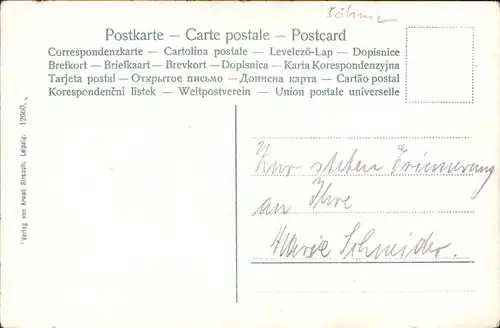 Böhme
Postkarte — Carte postale — Postcard
Correspondenzkarte — Cartolina postale — Levelező-Lap — Dopisnice
Brefkort — Briefkaart — Brevkort — Dopisnica — Karta Korespondenzyjna
Tarjeta postal — Открытое письмо — Доппсна карта — Cartão postal
Korespondenční listek — Weltpostverein — Union postale universelle
Verlag von Arwed Strauch, Leipzig. 12060.
Zur steten Erinnerung
an Ihre
Marie Schneider.